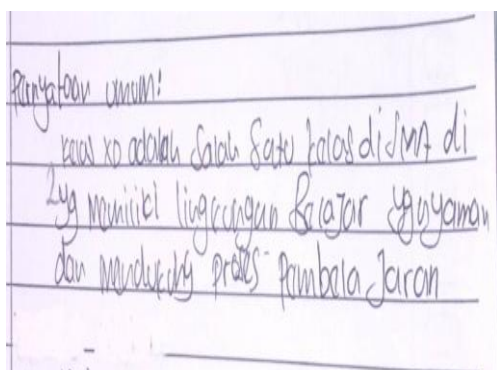 Pernyataan umum:
kelas XD adalah Salah Satu kelas di SMA di
2 yg memiliki lingkungan Belajar yg nyaman
dan mendukung proses Pembela Jaran